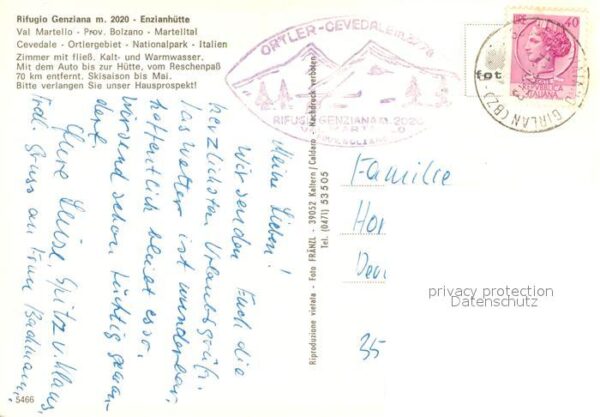 Rifugio Genziana m. 2020 - Enzianhütte
Val Martello - Prov. Bolzano - Martelltal
Cevedale - Ortlergebiet - Nationalpark - Italien
Zimmer mit fließ. Kalt- und Warmwasser.
Mit dem Auto bis zur Hütte, vom Reschenpaß
70 km entfernt. Skisaison bis Mai.
Bitte verlangen Sie unser Hausprospekt!
Meine Lieben!
Wir senden Euch die
herzlichsten Urlaubsgrüße.
Das Wetter ist wunderbar,
hoffentlich bleibt es so.
Wir sind schon tüchtig gewan-
dert.
Eure Luise, Spitz u. Klaus
Frdl. Gruss an Frau Bachmann
5466
Riproduzione vietata - Foto FRÄNZL - 39052 Kaltern/Caldaro - Nachdruck verboten
Tel. (0471) 53505
ORTLER-CEVEDALE
RIFUGIO GENZIANA M. 2020
fot
40
ITALIANA
GIRLAN (BZ)
Familie
Hor
35
privacy protection
Datenschutz